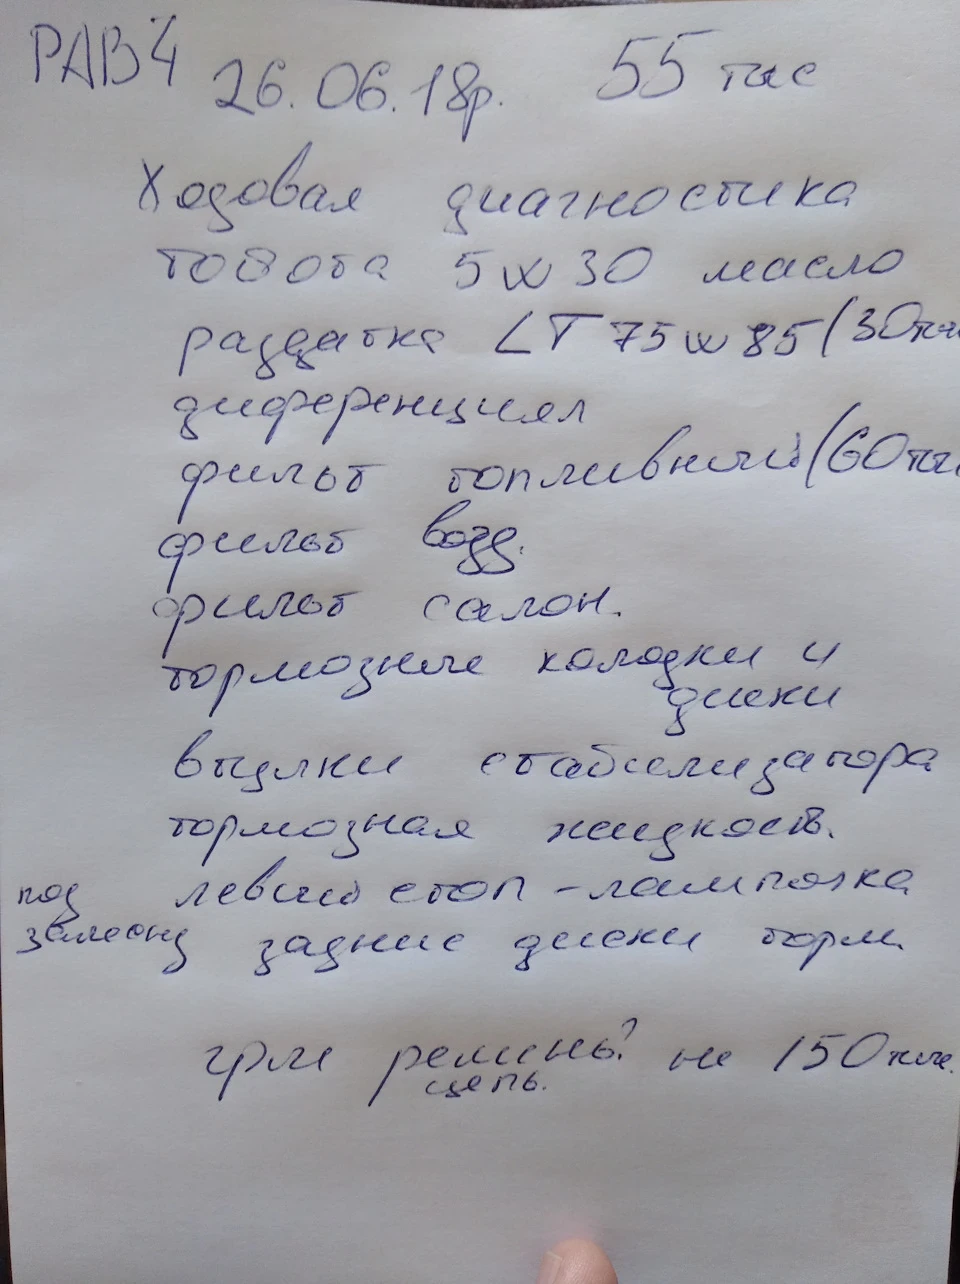 РАВ 4 26.06.18р. 55 тис
Ходовая диагностика
тойота 5w30 масло
раздатка LT 75w85 (30тис
диференциял
фильт топливний (60тис
фильт возд.
фильт салон.
тормозние колодки и
диски
втулки стабилизатора
тормозная жидкость.
левий стоп - лампочка
под замену задние диски торм.
грм ремень? на 150тис.
цепь.